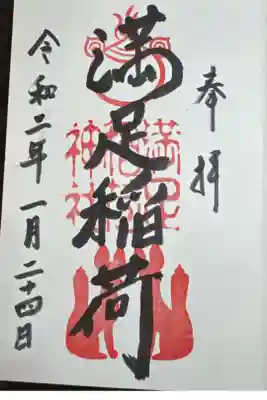 奉拝
満足稲荷
満足稲荷神社
令和二年一月二十四日